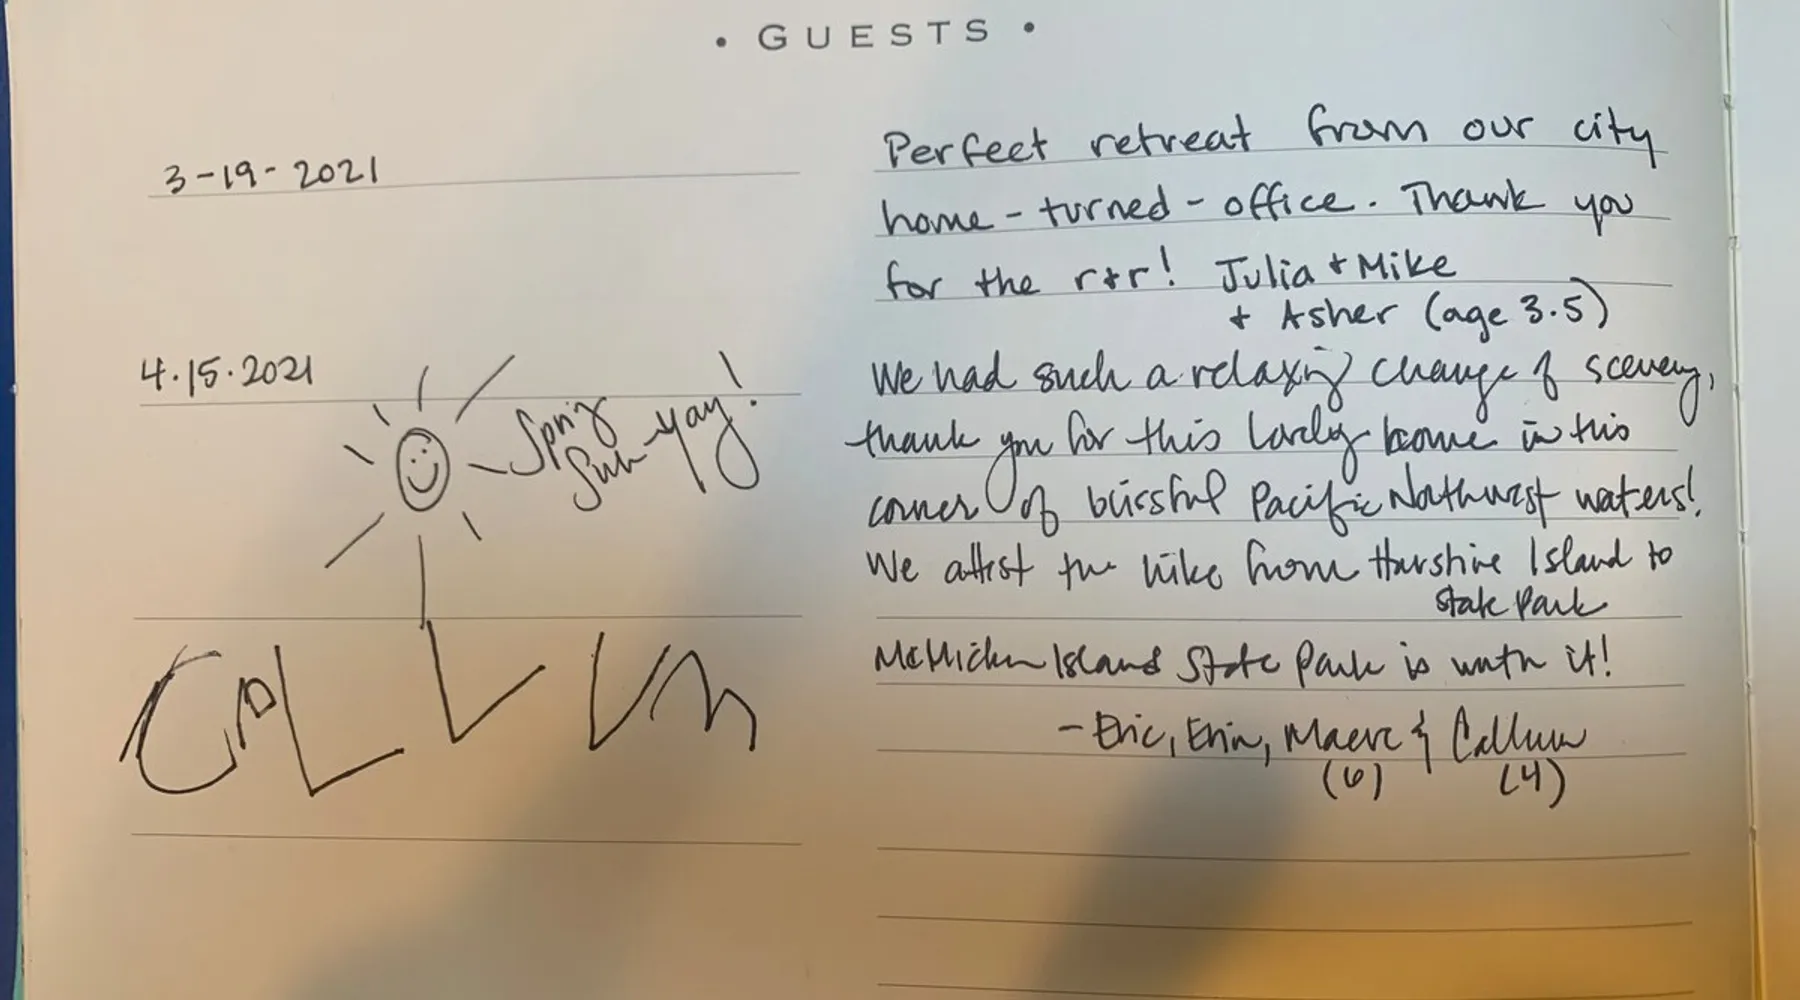 • GUESTS •
3-19-2021
Perfect retreat from our city
home-turned-office. Thank you
for the r+r! Julia + Mike
+ Asher (age 3.5)
4.15.2021
Spring
Sun - Yay!
CaLLUm
We had such a relaxing change of scenery,
thank you for this lovely home in this
corner of blissful Pacific Northwest waters!
We attest the hike from Harstine Island to
State Park
McMicken Island State Park is worth it!
- Eric, Erin, Maeve & Callum
(6) (4)